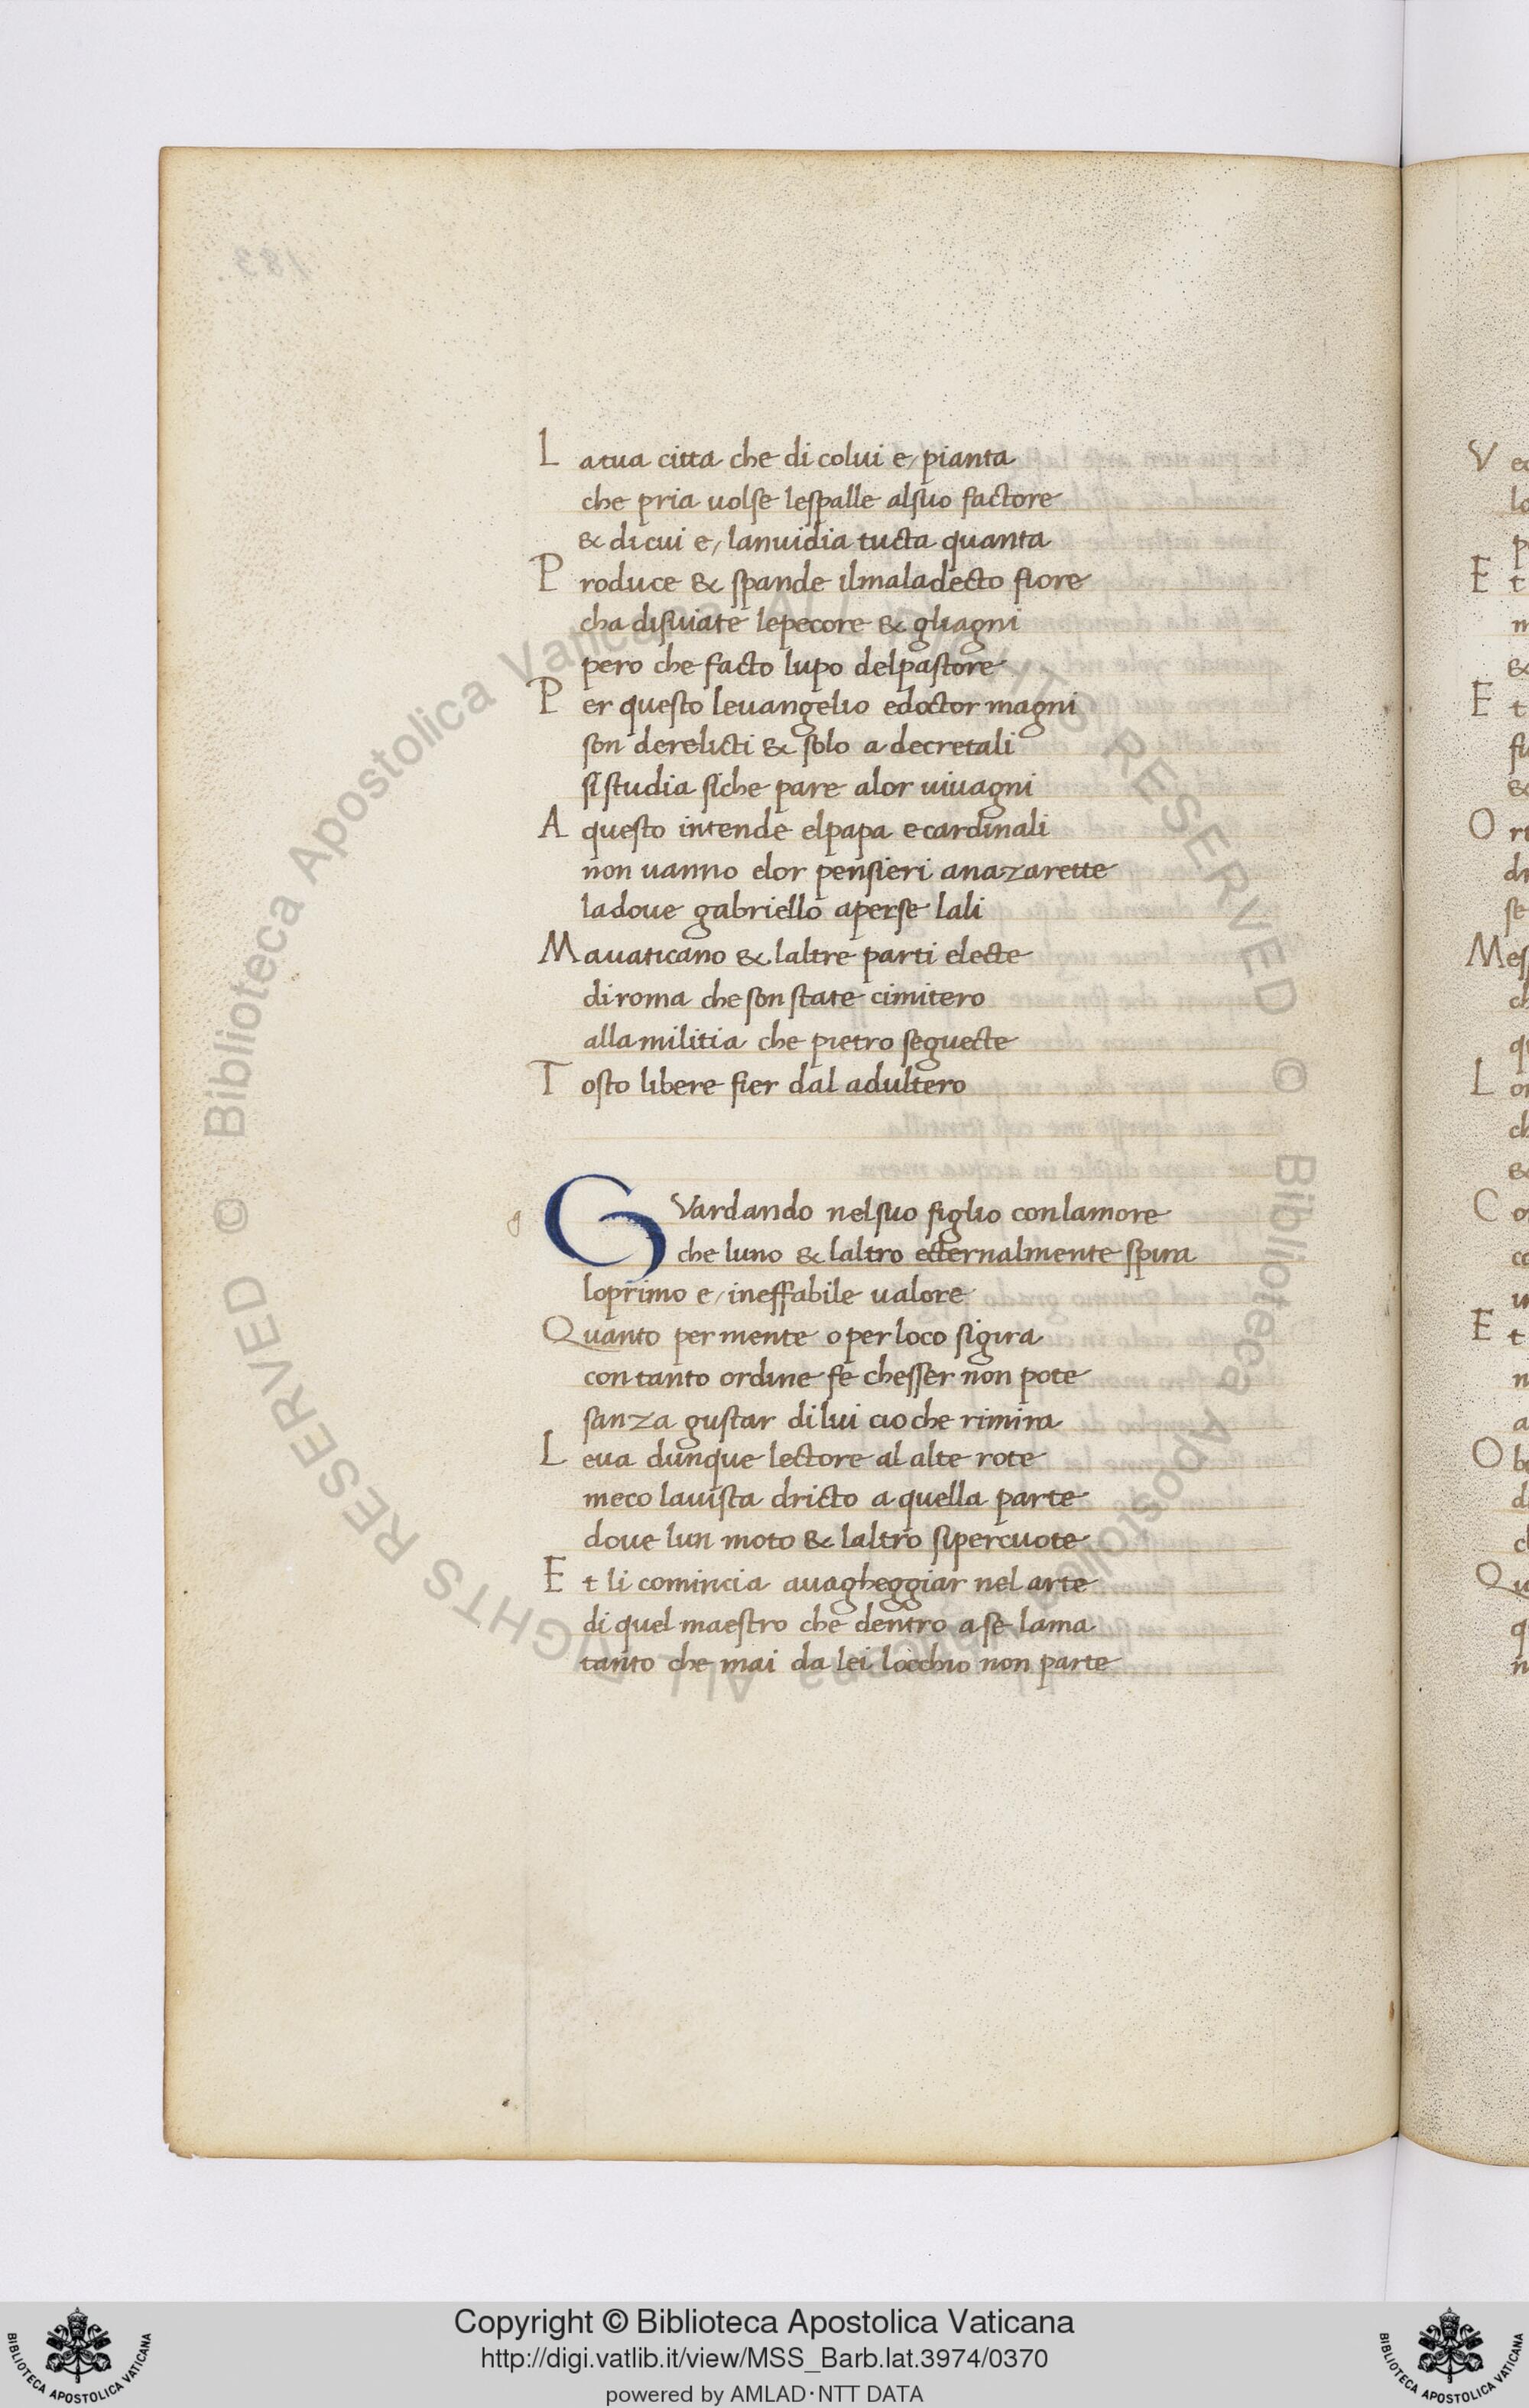 La tua citta che di colui e, pianta
che pria uolse lespalle alsuo factore
& di cui e, lanuidia tucta quanta
Produce & spande ilmaladecto fiore
cha disuiate lepecore & gliagni
pero che facto lupo delpastore
Per questo leuangelio edoctor magni
son derelicti & solo a decretali
sistudia siche pare alor uiuagni
A questo intende elpapa ecardinali
non uanno elor pensieri anazarette
ladoue gabriello aperse lali
Mauaticano & laltre parti electe
diroma che son state cimitero
allamilitia che pietro seguecte
Tosto libere fier dal adultero
g
GVardando nelsuo figlio conlamore
che luno & laltro ecternalmente spira
loprimo e, ineffabile ualore
Quanto per mente o per loco sigira
con tanto ordine fe chesser non pote
sanza gustar dilui cio che rimira
Leua dunque lectore al alte rote
meco lauista dricto a quella parte
doue lun moto & laltro sipercuote
Et li comincia auagheggiar nel arte
di quel maestro che dentro a se lama
tanto che mai da lei locchio non parte
Copyright © Biblioteca Apostolica Vaticana
http://digi.vatlib.it/view/MSS_Barb.lat.3974/0370
powered by AMLAD·NTT DATA